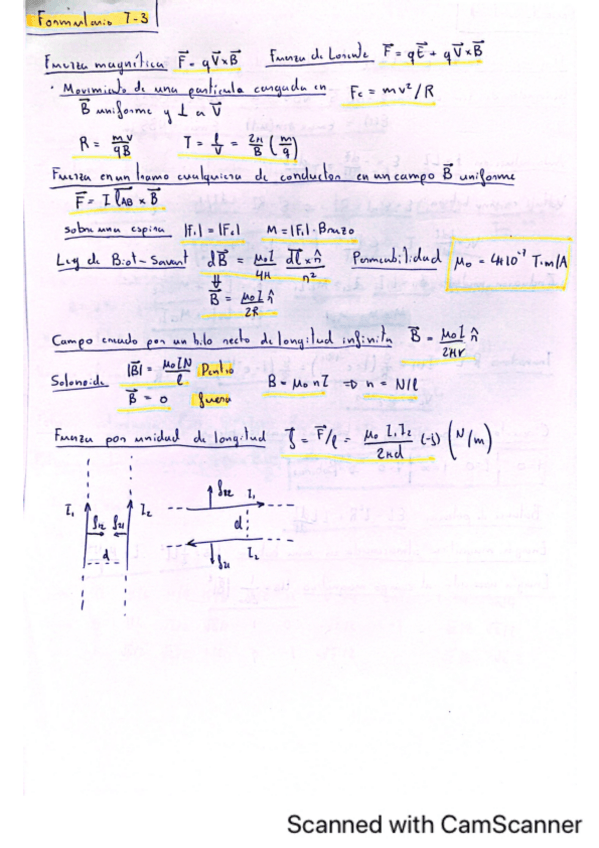 Formulario T-3
Fuerza magnética F⃗ = qV⃗×B⃗ Fuerza de Lorentz F⃗ = qE⃗ + qV⃗×B⃗
· Movimiento de una partícula cargada en Fc = mv²/R
B⃗ uniforme y ⊥ a V⃗
R = mv/qB T = l/V = 2π/B (m/q)
Fuerza en un tramo cualquiera de conductor en un campo B⃗ uniforme
F⃗ = I l⃗AB × B⃗
sobre una espira |F₁| = |F₂| M = |F₁|·Brazo
Ley de Biot-Savart dB⃗ = μ₀I/4π dl⃗×n̂/r² Permeabilidad μ₀ = 4π10⁻⁷ T·m/A
⇓
B⃗ = μ₀I/2R n̂
Campo creado por un hilo recto de longitud infinita B⃗ = μ₀I/2πr n̂
Solenoide |B⃗| = μ₀IN/l Dentro B = μ₀nI ⇒ n = N/l
B⃗ = 0 fuera
Fuerza por unidad de longitud f⃗ = F⃗/l = μ₀ I₁I₂/2πd (-j) (N/m)
I₁ f₁₂ f₂₁ I₂ d
f₁₂ I₁
d
I₂
f₂₁
Scanned with CamScanner